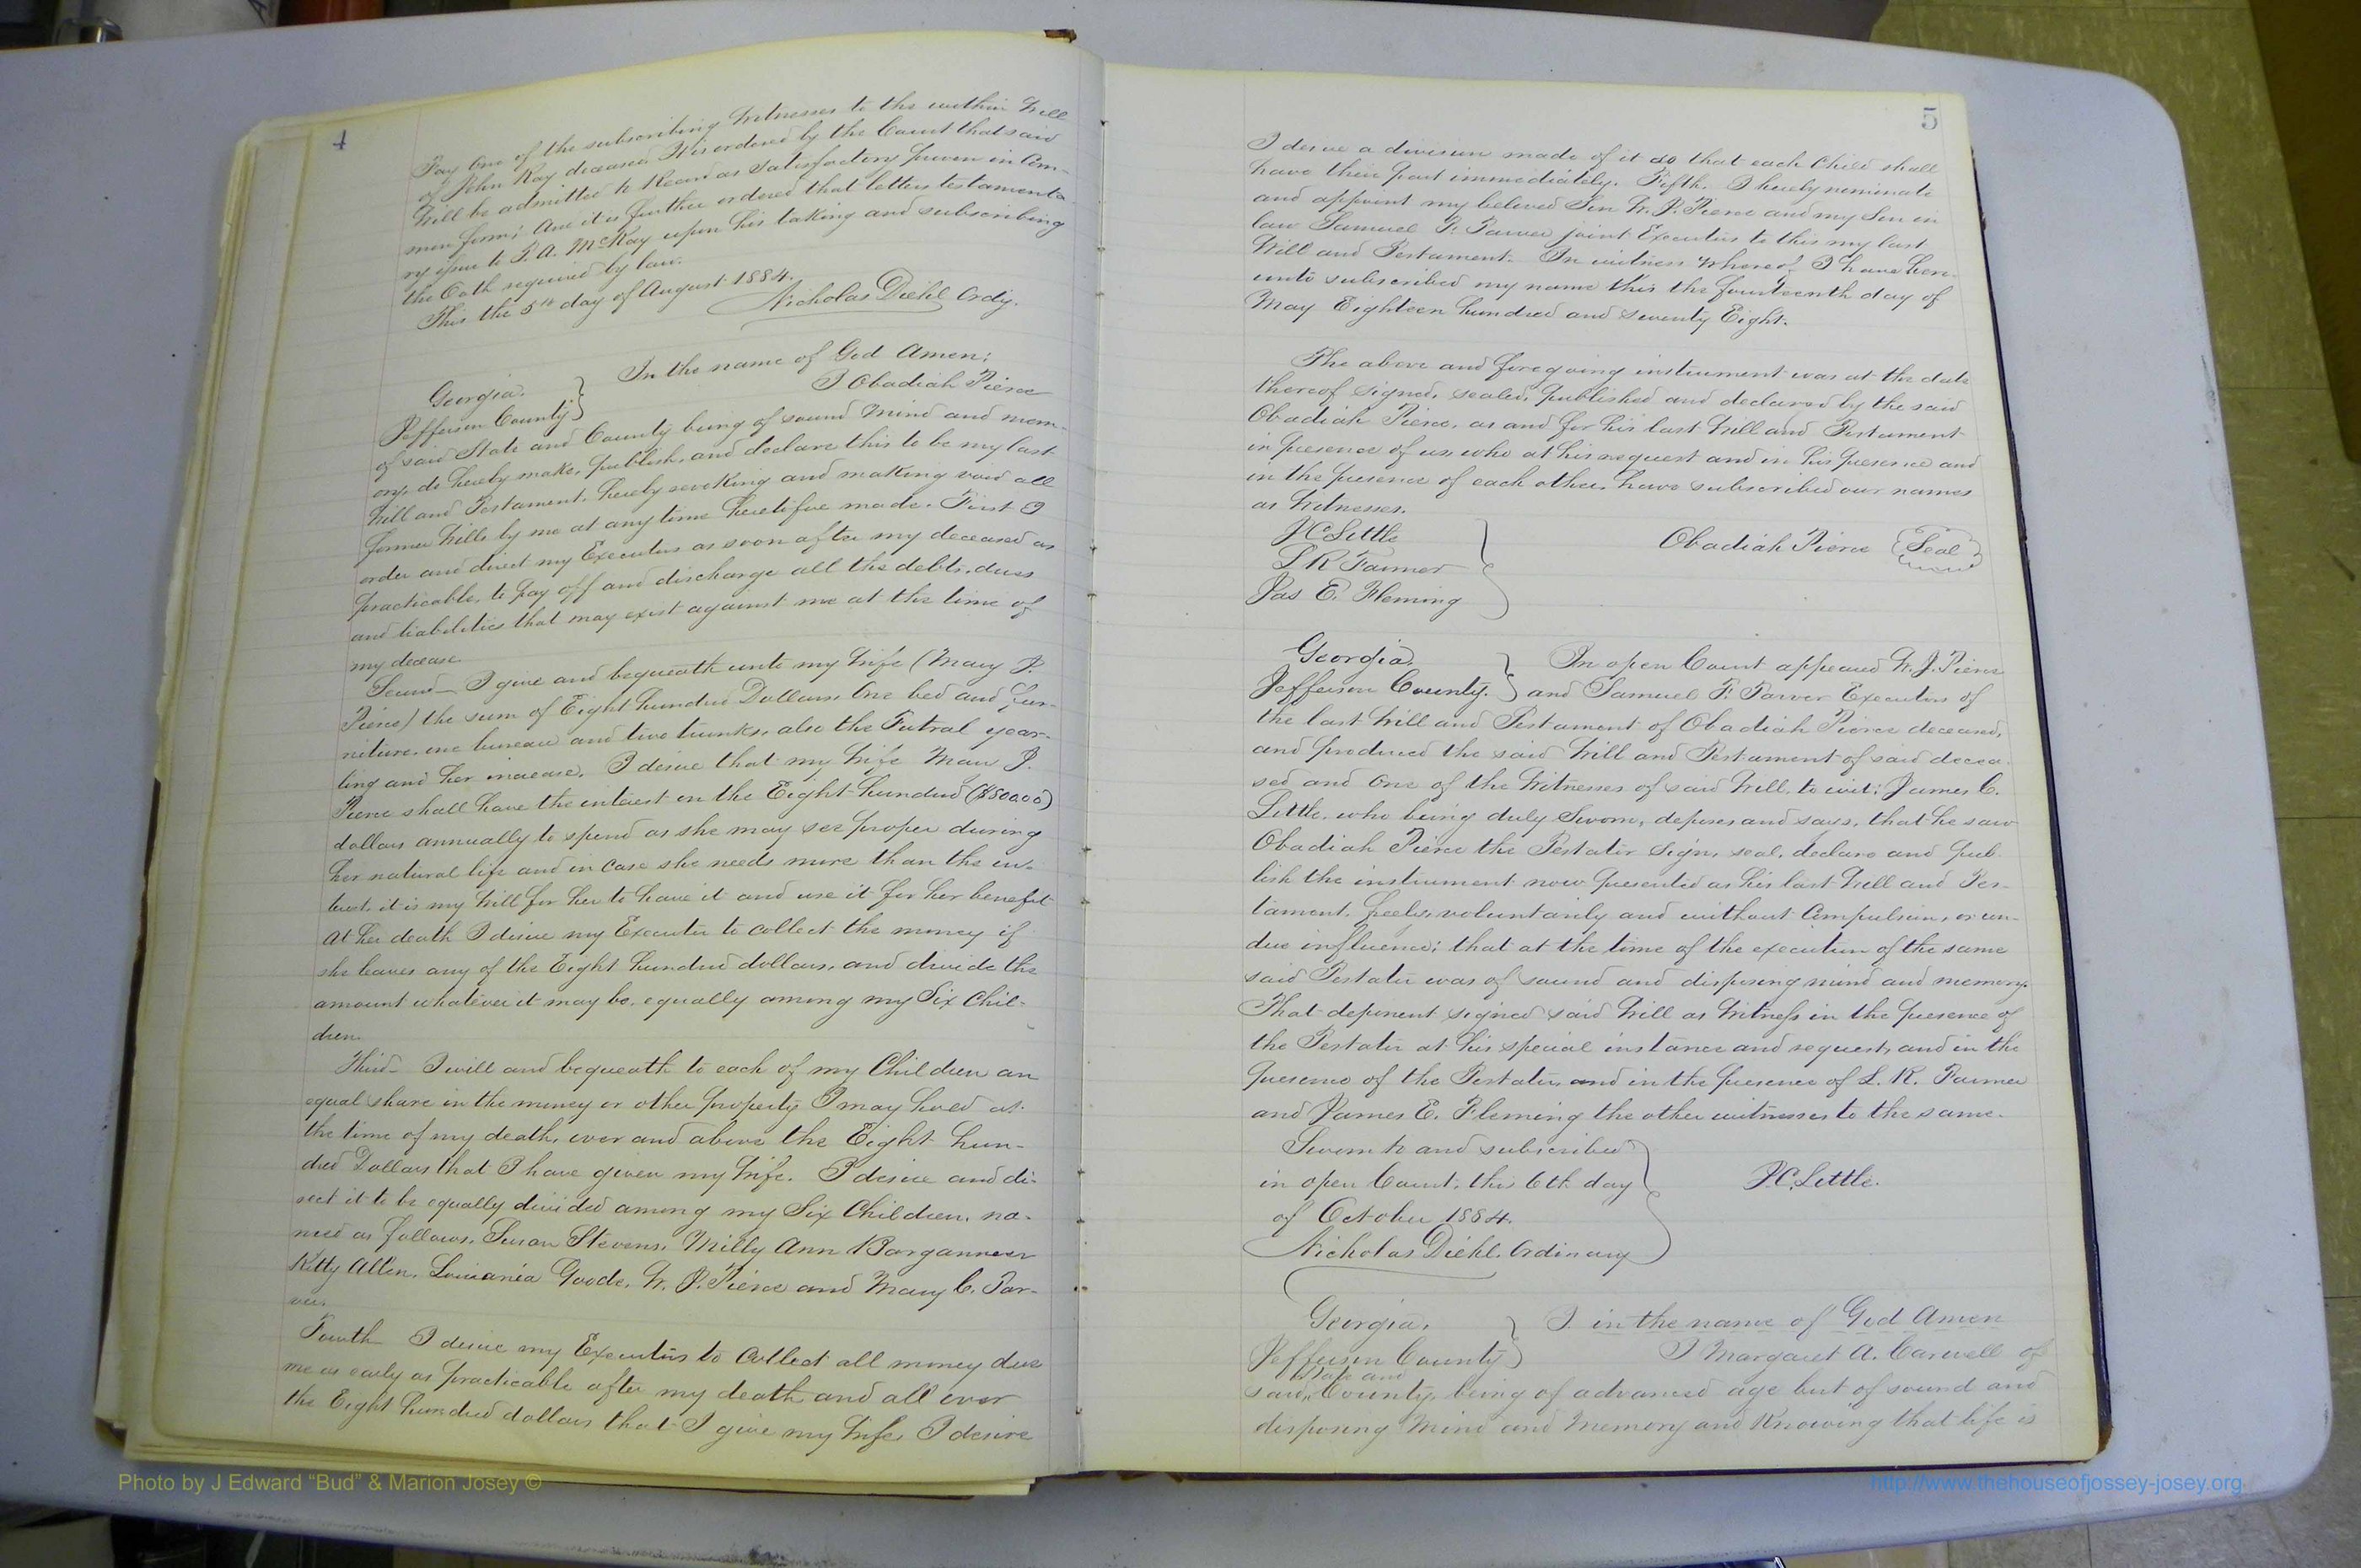 4
Fay One of the subscribing Witnesses to the within Will
of John Kay deceased It is ordered by the Court that said
Will be admitted to Record as Satisfactory proven in Com-
mon form; And it is further ordered that letters testamenta
ry issue to P. A. McKay upon his taking and subscribing
the Oath required by law.
This the 5th day of August 1884.
Nicholas Diehl Ordy.
Georgia. } In the name of God Amen;
Jefferson County } I Obadiah Pierce
of said State and County being of sound Mind and mem-
ory, do hereby make, publish, and declare this to be my last
Will and Testament, hereby revoking and making void all
former Wills by me at any time heretofore made. First I
order and direct my Executors as soon after my deceased as
practicable, to pay off and discharge all the debts, dues
and liabilities that may exist against me at the time of
my decease
Second— I give and bequeath unto my Wife (Mary J.
Pierce) the sum of Eight hundred Dollars, One bed and fur-
niture, one bureau and two trunks, also the Futral year-
ling and her increase. I desire that my Wife Mary J.
Pierce shall have the interest on the Eight hundred ($800.00)
dollars annually to spend as she may see proper during
her natural life and in case she needs more than the in-
terest, it is my Will for her to have it and use it for her benefit
At her death I desire my Executor to collect the money if
she leaves any of the Eight hundred dollars, and divide the
amount whatever it may be, equally among my Six Chil-
dren.
Third— I will and bequeath to each of my Children an
equal share in the money or other property I may hold at
the time of my death, over and above the Eight hun-
dred Dollars that I have given my Wife. I desire and di-
rect it to be equally divided among my Six Children, na-
med as follows, Susan Stevens, Milly Ann Barganneer
Kitty Allen, Louiania Goode, W. J. Pierce and Mary C. Par-
ver.
Fourth— I desire my Executors to Collect all money due
me as early as practicable after my death and all over
the Eight hundred dollars that I give my Wife, I desire
5
I desire a division made of it so that each Child shall
have their part immediately. Fifth. I hereby nominate
and appoint my beloved Son W. J. Pierce and my Son in
law Samuel P. Parver joint Executors to this my last
Will and Testament. In witness Whereof I have here-
unto subscribed my name this the fourteenth day of
May Eighteen hundred and seventy Eight.
The above and foregoing instrument was at the date
thereof signed, sealed, published and declared by the said
Obadiah Pierce, as and for his last Will and Testament
in presence of us, who at his request and in his presence and
in the presence of each other, have subscribed our names
as Witnesses.
J C Little
L R Farmer
Jas E. Fleming
Obadiah Pierce {Seal}
Georgia. } In open Court appeared W. J. Pierce
Jefferson County. } and Samuel P. Parver Executors of
the last Will and Testament of Obadiah Pierce deceased,
and produced the said Will and Testament of said decea-
sed and One of the Witnesses of said Will, to wit; James C.
Little, who being duly Sworn, deposes and says, that he saw
Obadiah Pierce the Testator sign, seal, declare and pub-
lish the instrument now presented as his last Will and Tes-
tament, freely, voluntarily and without Compulsion, or un-
due influence; that at the time of the execution of the same
said Testator was of sound and disposing mind and memory.
That deponent signed said Will as Witness in the presence of
the Testator at his special instance and request, and in the
presence of the Testator, and in the presence of L. R. Farmer
and James E. Fleming the other witnesses to the same.
Sworn to and subscribed
in open Court, this 6th day } J.C. Little.
of October 1884.
Nicholas Diehl. Ordinary
Georgia. } I. in the name of God Amen
Jefferson County } I Margaret A. Carwell of
State and
said County, being of advanced age but of sound and
disposing Mind and Memory and Knowing that life is
Photo by J Edward “Bud” & Marion Josey ©
http://www.thehouseofjossey-josey.org